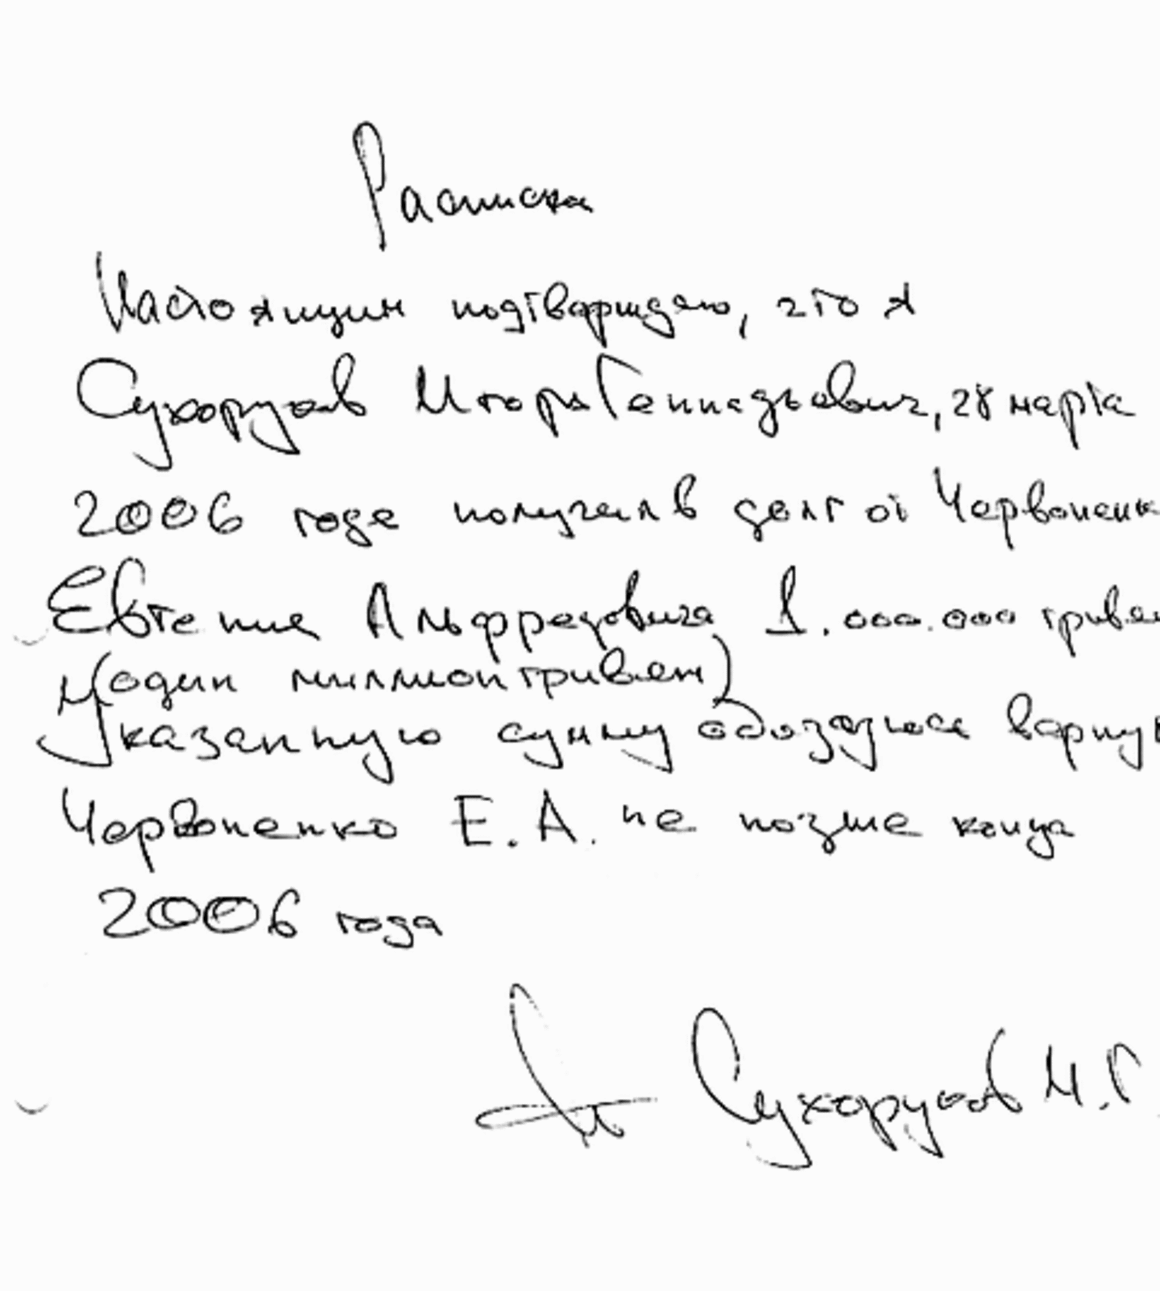 Расписка
Настоящим подтверждаю, что я
Сухоруков Игорь Геннадьевич, 28 марта
2006 года получил в долг от Червоненк
Евгения Альфредовича 1.000.000 гривен
(один миллион гривен)
Указанную сумму обязуюсь вернуть
Червоненко Е.А. не позже конца
2006 года
Сухоруков И.Г.